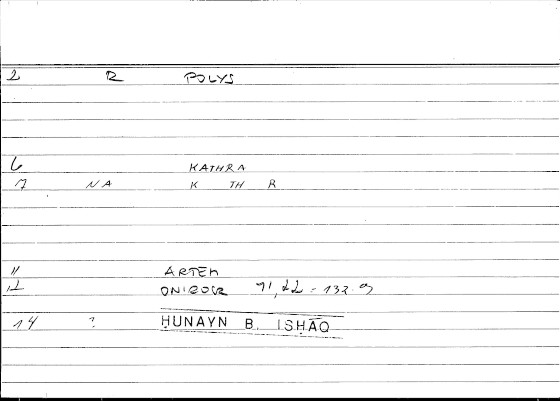 2 R POLYS
6 KATHRA
7 NA K TH R
11 ARTEM
12 ONIROCR 71,22 = 132.9
14 ? ḤUNAYN B. ISḤĀQ